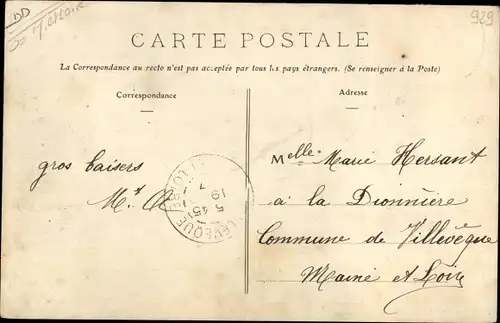 929
CARTE POSTALE
La Correspondance au recto n'est pas acceptée par tous les pays étrangers. (Se renseigner à la Poste)
Correspondance
Adresse
gros baisers
Melle Marie Hersant
a la Dionnière
Commune de Villevêque
Maine et Loire